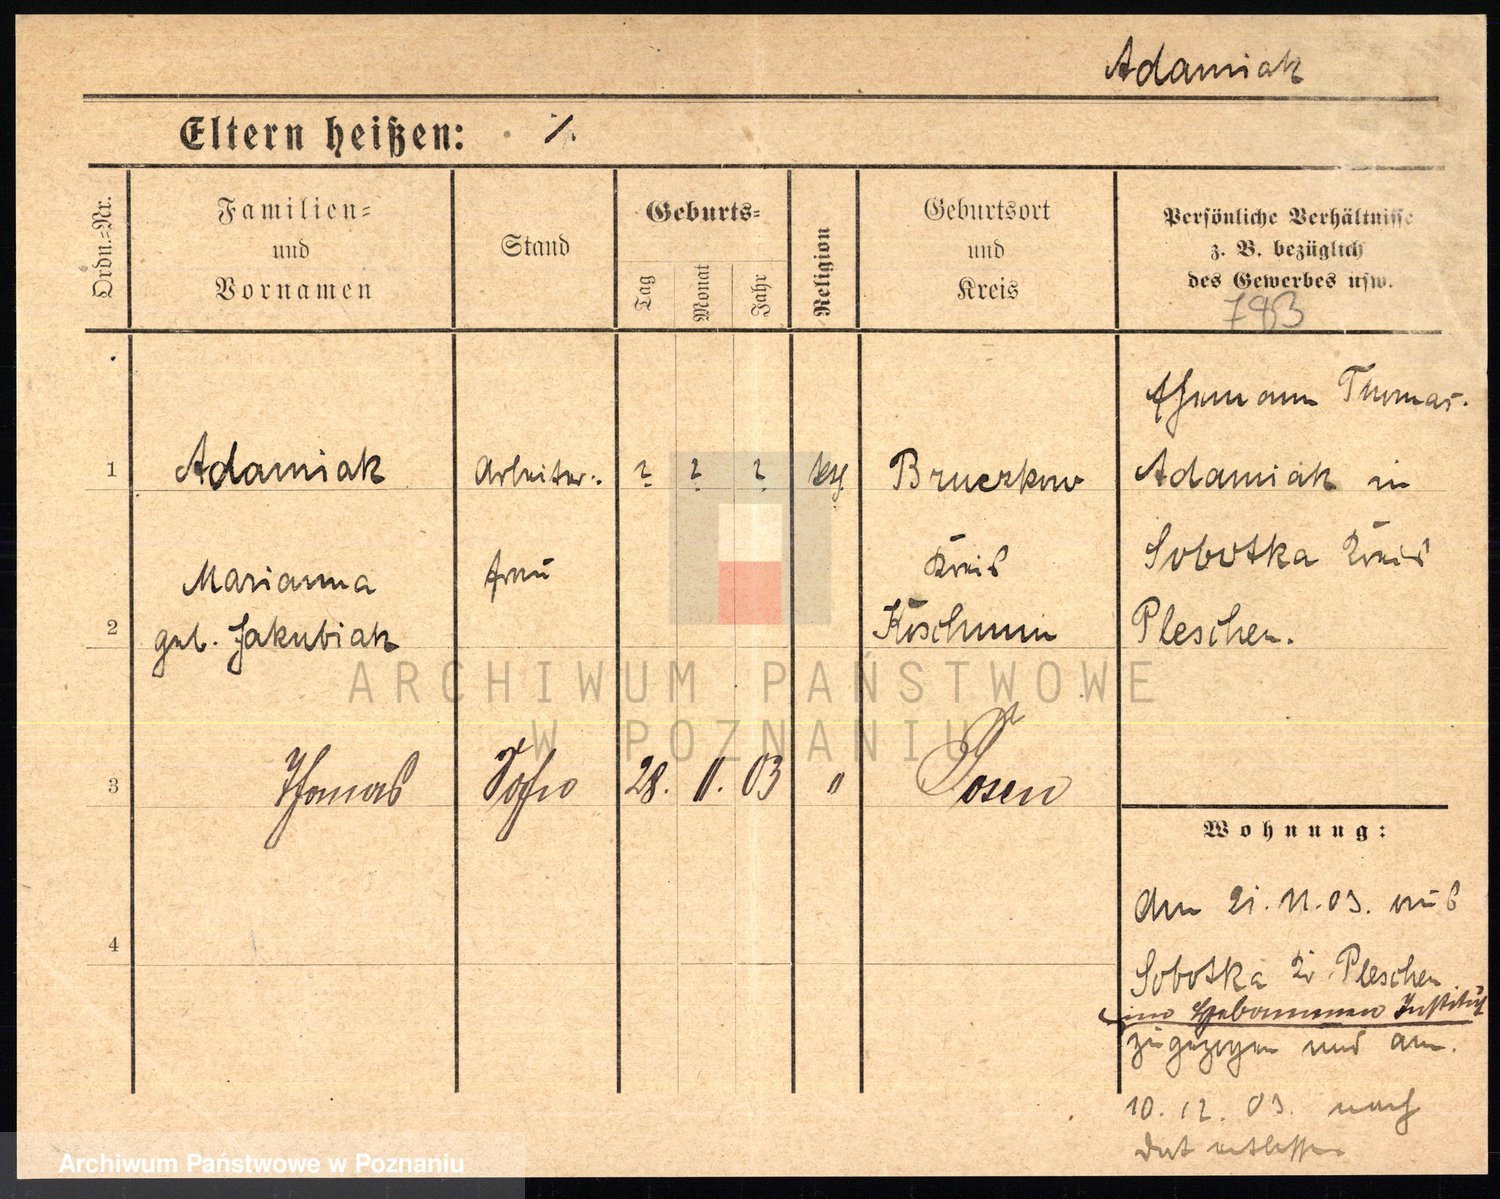 Adamiak
Eltern heißen: ·/.
Ordn.-Nr.
Familien-
und
Vornamen
Stand
Geburts-
Tag
Monat
Jahr
Religion
Geburtsort
und
Kreis
Persönliche Verhältnisse
z. B. bezüglich
des Gewerbes usw.
783
1
Adamiak
Arbeiter-
? ? ?
kth
Bruczkow
Ehemann Thomas
Adamiak in
Marianna
frau
Kreis
Sobotka Kreis
2
geb. Jakubiak
Koschmin
Pleschen.
3
Thomas
Sohn
28. 11. 03
"
Posen
4
Wohnung:
Am 21. 11. 03. aus
Sobotka Kr. Pleschen
im Hebammen Institut
zugezogen und am
10. 12. 03. nach
dort entlassen
ARCHIWUM PAŃSTWOWE
W POZNANIU
Archiwum Państwowe w Poznaniu